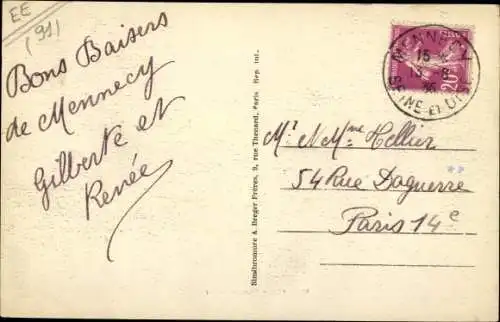 EE
(91)
Bons Baisers
de Mennecy
Gilberte et
Renée
Bimsbromure A. Breger Frères, 9, rue Thénard, Paris Rep. int.
MENNECY
15
SEINE-ET-OISE
20c
Mr et Mme Hellier
54 Rue Daguerre
Paris 14e